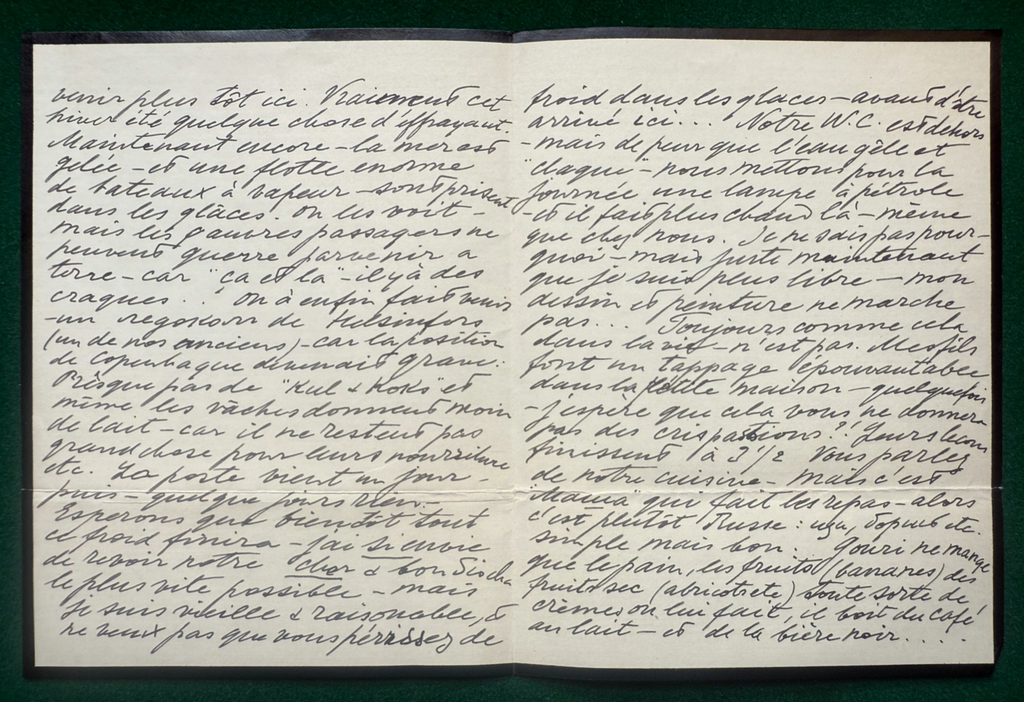 venir plus tôt ici. Vraiment cet
hiver été quelque chose d'effrayant.
Maintenant encore – la mer est
gelée – et une flotte enorme
de bateaux à vapeur – sont prisent
dans les glâces. On les voit –
mais les pauvres passagers ne
peuvent guerre parvenir a
terre – car "ça et là" – il y à des
craques . . " On à enfin fait venir
– un de Helsinfors
(un de nos anciens) – car la position
de Copenhague devenait grave:
Présque pas de "Kul & Koks" et
même les vâches donnent moin
de lait – car il ne restent pas
grand chose pour leurs nourriture
etc. La poste vient un jour –
puis – quelque jours rien. –
Esperons que bientôt tout
ce froid finira – j'ai si envie
de revoir notre cher & bon
le plus vite possible – mais
je suis vieille & raisonable, &
ne veux pas que vous périssez de
froid dans les glaces – avant d'être
arrivé ici . . . Notre W.C. est dehors
– mais de peur que l'eau gêle et
"claque" – nous mettons pour la
journée une lampe à pétrole
– et il fait plus chaud là – même
que chez nous. Je ne sais pas pour-
quoi – mais juste maintenant
que je suis plus libre – mon
dessin et peinture ne marche
pas . . . Toujours comme cela
dans la vie – n'est pas. Mes fils
font un tappage épouvantable
dans la petite maison – quelquefois
– j'espère que cela vous ne donnera
pas des crispations?! Leurs lecons
finissent à 3 1/2 Vous parlez
de notre cuisine – mais c'est
"Mama" qui fait les repas – alors
c'est plutôt Russe: etc
simple mais bon . . Gouri ne mange
que le pain, les fruits (bananes) des
fruits sec (abricots etc) toute sorte de
crèmes on lui fait, il boit du café
au lait – et de la bière noir . . . .